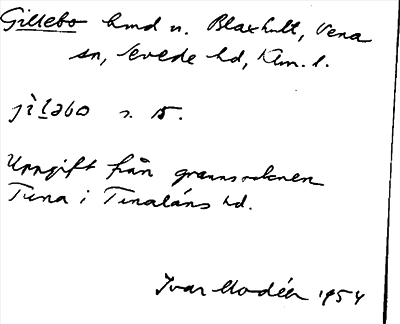 Gillebo hmd u. Blaxhult, Vena
sn, Sevede hd, Klm. l.
jìlǝbo n. B.
Uppgift från grannsocknen
Tuna i Tunaläns hd.
Ivar Modéer 1954